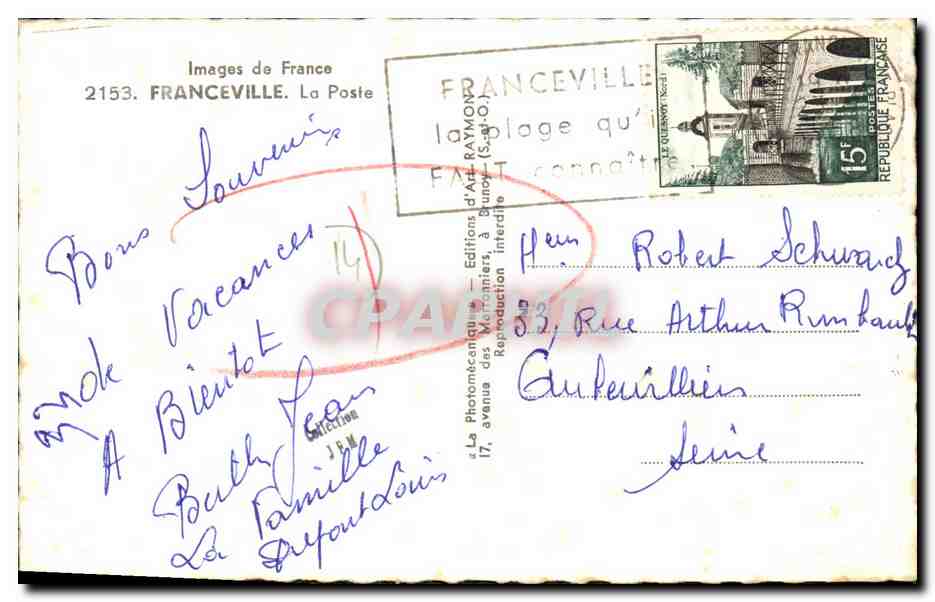 Images de France
2153. FRANCEVILLE. La Poste
FRANCEVILLE
la plage qu'i
FAIT connaître
LE QUESNOY (Nord)
15F
POSTES
REPUBLIQUE FRANÇAISE
Bons Souvenirs
de Vacances
A Bientot
Jean
La Famille
14
CPARAMA
Collection
J F M
« La Photomécanique » — Editions d'Art RAYMON
17, avenue des Marronniers, à Brunoy (S.-et-O.)
Reproduction interdite
Robert Schwartz
33, Rue Arthur Rimbault
Seine